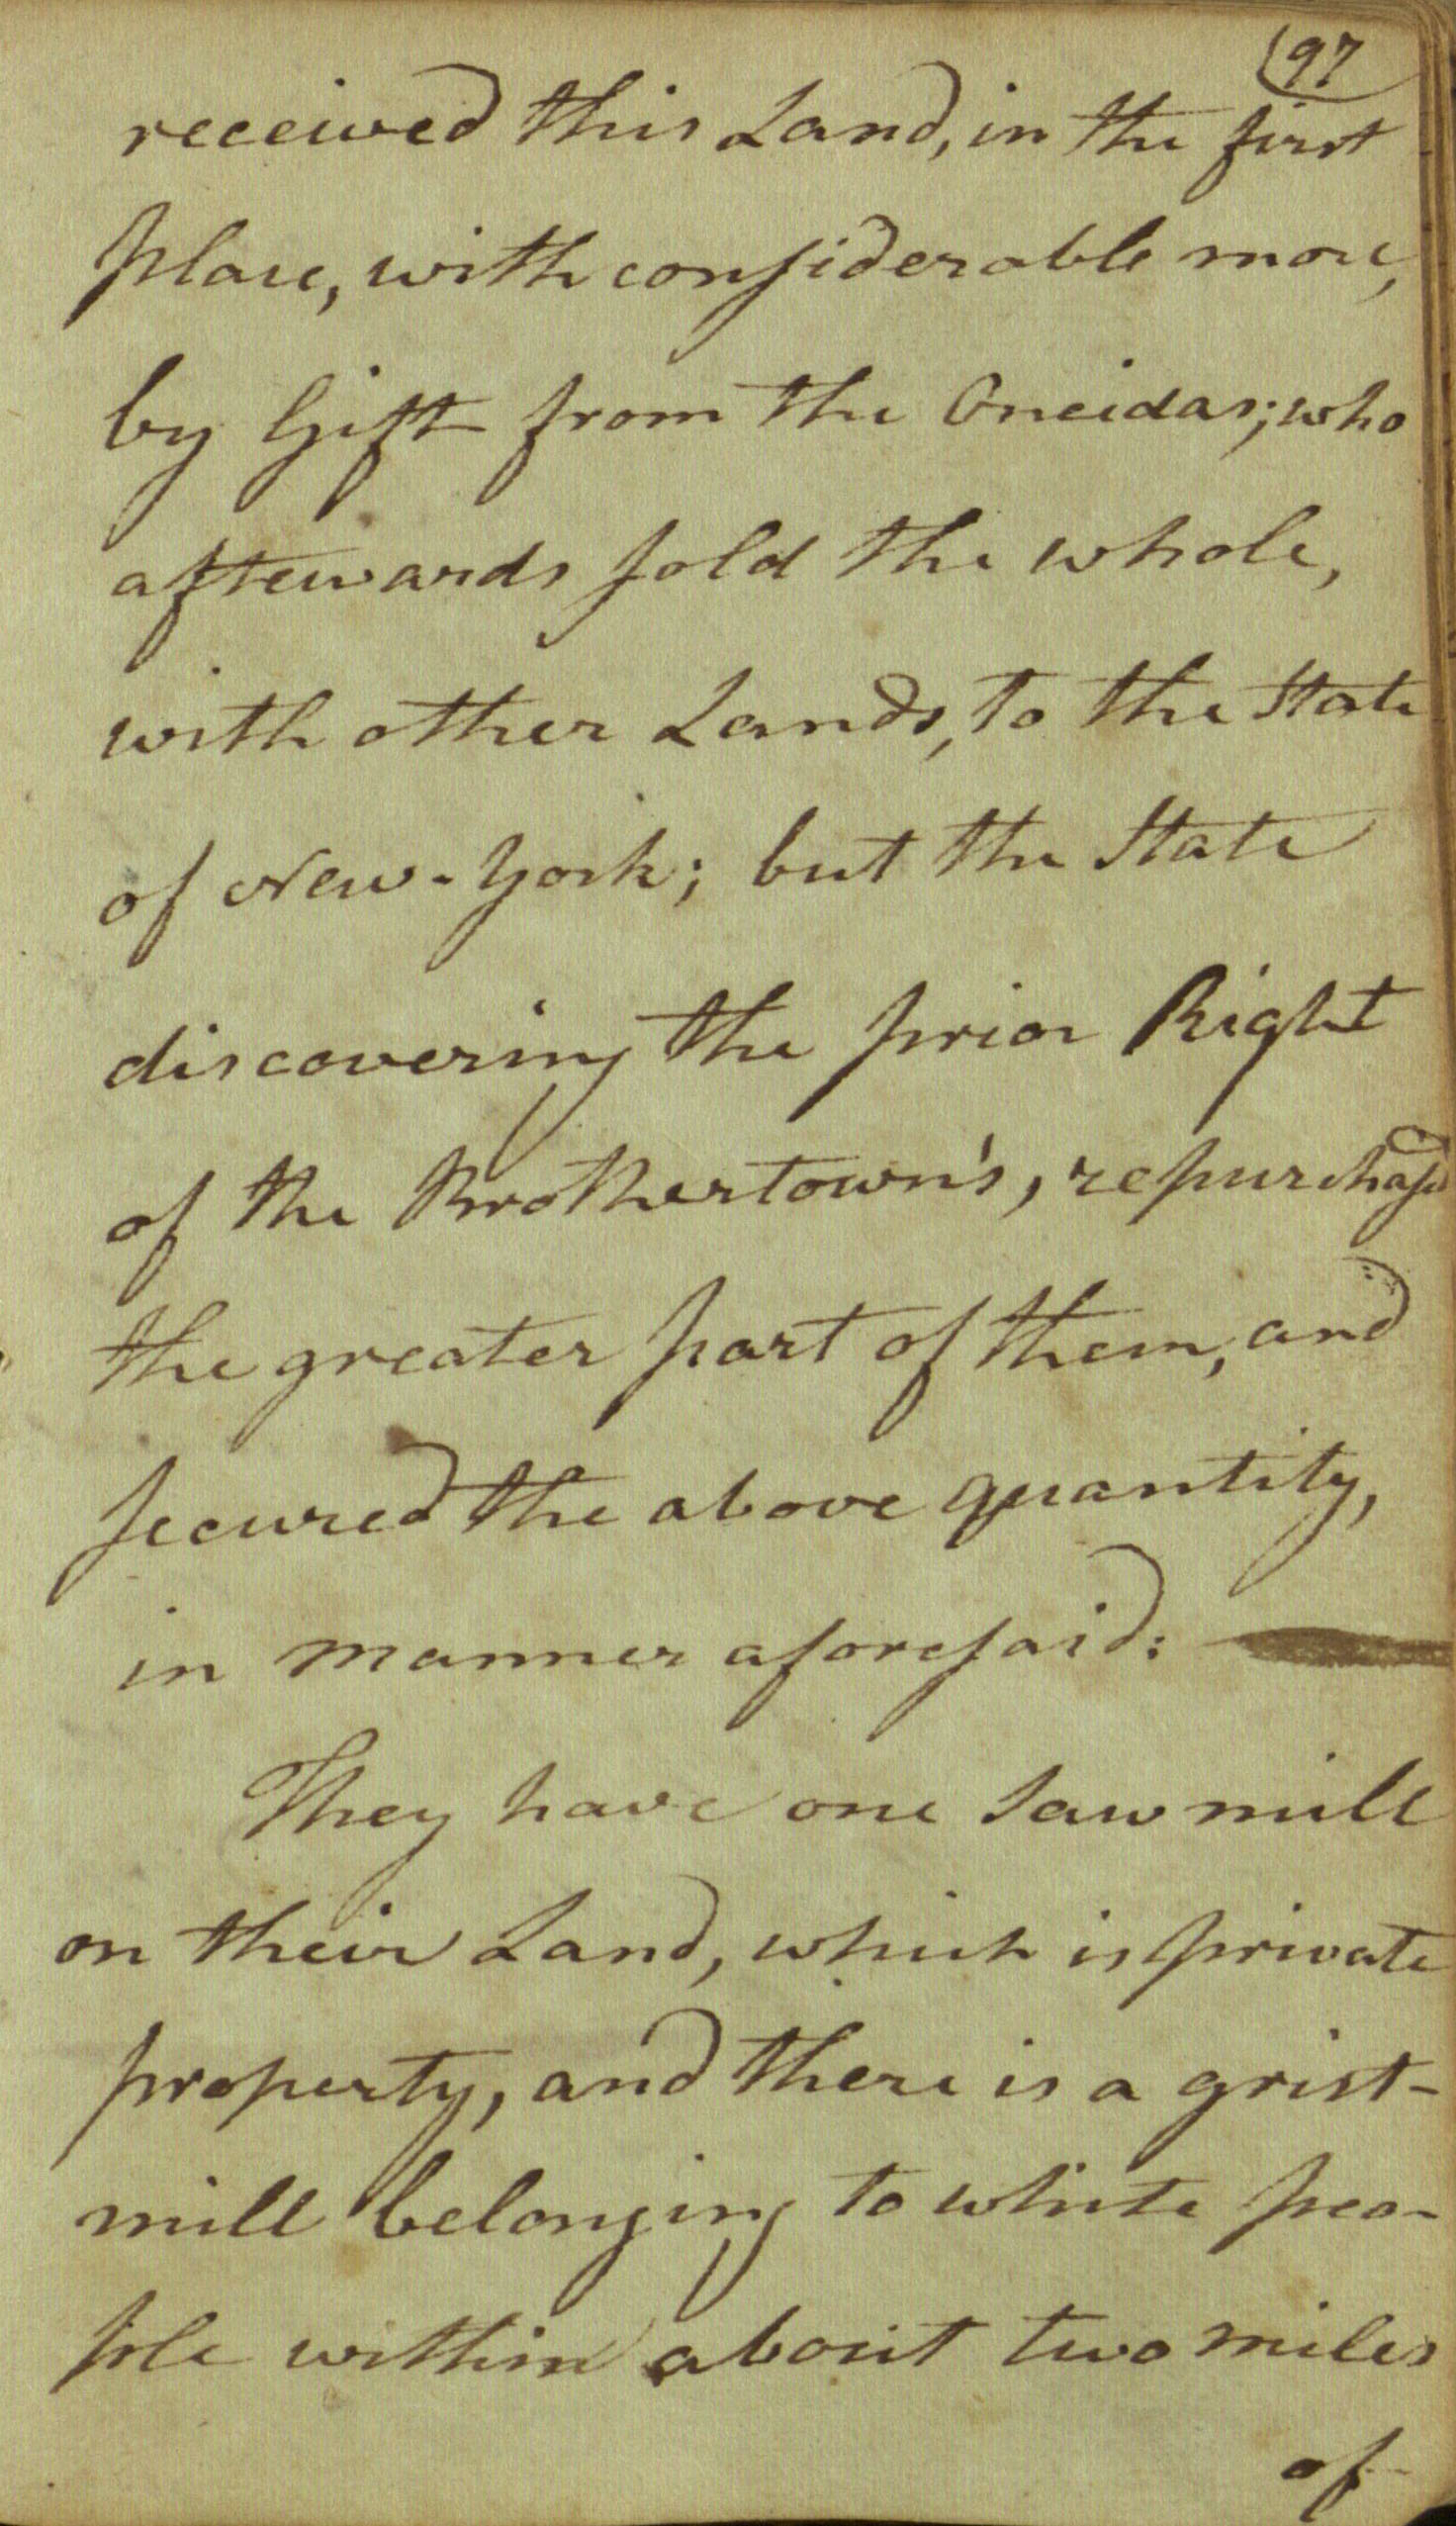 97
received this Land, in the first
place, with considerable more,
by Gift from the Oneidas; who
afterwards sold the whole,
with other Lands, to the State
of New-York; but the State
discovering the prior Right
of the Brothertown's, repurchased
the greater part of them, and
secured the above quantity,
in manner aforesaid:
They have one Saw mill
on their Land, which is private
property, and there is a grist-
mill belonging to white peo-
ple within about two miles
of